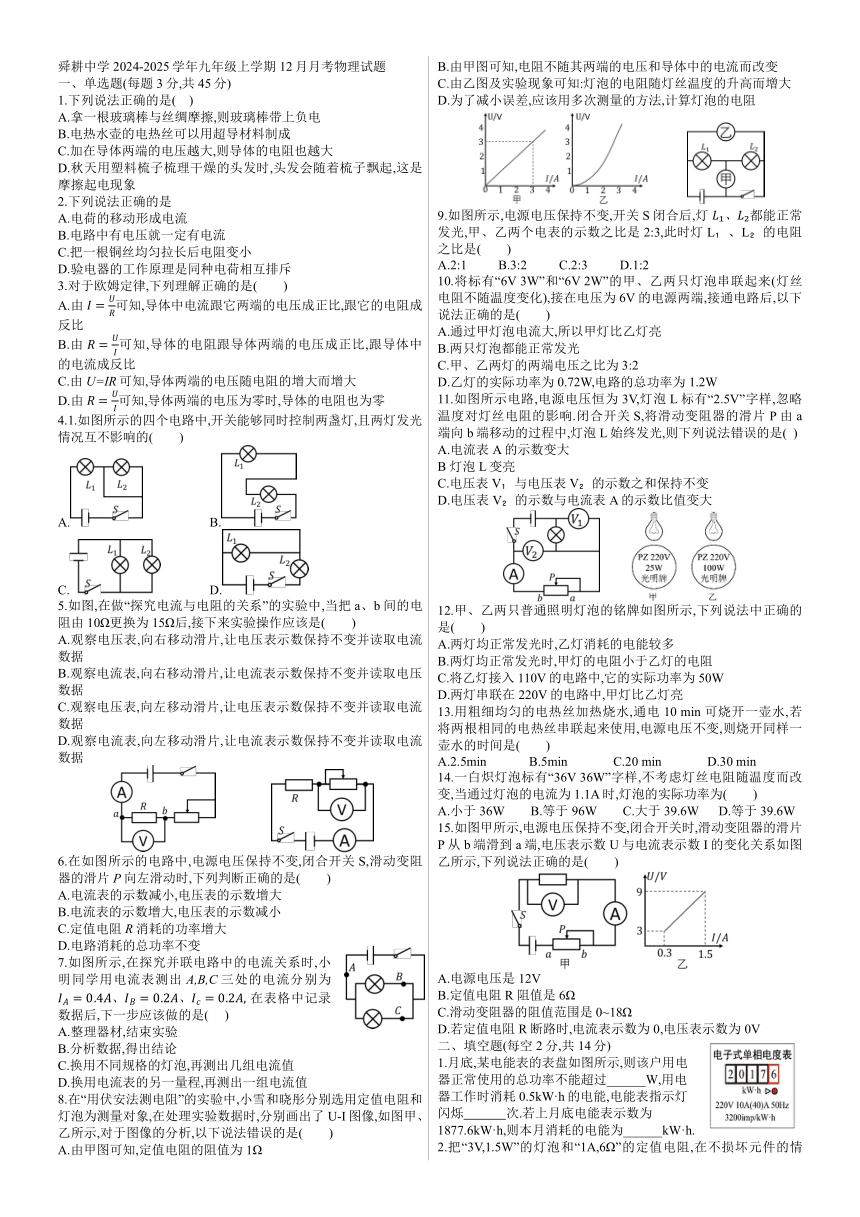 舜耕中学 2024-2025 学年九年级上学期 12 月月考物理试题
一、单选题(每题 3 分,共 45 分)
1.下列说法正确的是( )
A.拿一根玻璃棒与丝绸摩擦,则玻璃棒带上负电
B.电热水壶的电热丝可以用超导材料制成
C.加在导体两端的电压越大,则导体的电阻也越大
D.秋天用塑料梳子梳理干燥的头发时,头发会随着梳子飘起,这是
摩擦起电现象
2.下列说法正确的是
A.电荷的移动形成电流
B.电路中有电压就一定有电流
C.把一根铜丝均匀拉长后电阻变小
D.验电器的工作原理是同种电荷相互排斥
3.对于欧姆定律,下列理解正确的是( )
A.由 I = U/R 可知,导体中电流跟它两端的电压成正比,跟它的电阻成
反比
B.由 R = U/I 可知,导体的电阻跟导体两端的电压成正比,跟导体中
的电流成反比
C.由 U=IR 可知,导体两端的电压随电阻的增大而增大
D.由 R = U/I 可知,导体两端的电压为零时,导体的电阻也为零
4.1.如图所示的四个电路中,开关能够同时控制两盏灯,且两灯发光
情况互不影响的( )
L₁ L₂ S
A.
L₁ L₂ S
B.
L₁ L₂ S
C.
L₁ L₂ S
D.
5.如图,在做“探究电流与电阻的关系”的实验中,当把 a、b 间的电
阻由 10Ω更换为 15Ω后,接下来实验操作应该是( )
A.观察电压表,向右移动滑片,让电压表示数保持不变并读取电流
数据
B.观察电流表,向右移动滑片,让电流表示数保持不变并读取电压
数据
C.观察电压表,向左移动滑片,让电压表示数保持不变并读取电流
数据
D.观察电流表,向左移动滑片,让电流表示数保持不变并读取电流
数据
A a R b V
R V S A
6.在如图所示的电路中,电源电压保持不变,闭合开关 S,滑动变阻
器的滑片 P 向左滑动时,下列判断正确的是( )
A.电流表的示数减小,电压表的示数增大
B.电流表的示数增大,电压表的示数减小
C.定值电阻 R 消耗的功率增大
D.电路消耗的总功率不变
7.如图所示,在探究并联电路中的电流关系时,小
明同学用电流表测出 A,B,C 三处的电流分别为
I_A = 0.4A、I_B = 0.2A、I_c = 0.2A, 在表格中记录
数据后,下一步应该做的是( )
A.整理器材,结束实验
B.分析数据,得出结论
C.换用不同规格的灯泡,再测出几组电流值
D.换用电流表的另一量程,再测出一组电流值
A B C
8.在“用伏安法测电阻”的实验中,小雪和晓彤分别选用定值电阻和
灯泡为测量对象,在处理实验数据时,分别画出了 U-I 图像,如图甲、
乙所示,对于图像的分析,以下说法错误的是( )
A.由甲图可知,定值电阻的阻值为 1Ω
B.由甲图可知,电阻不随其两端的电压和导体中的电流而改变
C.由乙图及实验现象可知:灯泡的电阻随灯丝温度的升高而增大
D.为了减小误差,应该用多次测量的方法,计算灯泡的电阻
U/V 4 3 2 1 0 1 2 3 4 I/A 甲
U/V 4 3 2 1 0 1 2 3 4 I/A 乙
乙 L₁ L₂ 甲
9.如图所示,电源电压保持不变,开关 S 闭合后,灯 L₁、L₂都能正常
发光,甲、乙两个电表的示数之比是 2:3,此时灯 L? 、L? 的电阻
之比是( )
A.2:1 B.3:2 C.2:3 D.1:2
10.将标有“6V 3W”和“6V 2W”的甲、乙两只灯泡串联起来(灯丝
电阻不随温度变化),接在电压为 6V 的电源两端,接通电路后,以下
说法正确的是( )
A.通过甲灯泡电流大,所以甲灯比乙灯亮
B.两只灯泡都能正常发光
C.甲、乙两灯的两端电压之比为 3:2
D.乙灯的实际功率为 0.72W,电路的总功率为 1.2W
11.如图所示电路,电源电压恒为 3V,灯泡 L 标有“2.5V”字样,忽略
温度对灯丝电阻的影响.闭合开关 S,将滑动变阻器的滑片 P 由 a
端向 b 端移动的过程中,灯泡 L 始终发光,则下列说法错误的是( )
A.电流表 A 的示数变大
B 灯泡 L 变亮
C.电压表 V? 与电压表 V? 的示数之和保持不变
D.电压表 V? 的示数与电流表 A 的示数比值变大
V₁ S V₂ A P b a
PZ 220V 25W 光明牌 甲
PZ 220V 100W 光明牌 乙
12.甲、乙两只普通照明灯泡的铭牌如图所示,下列说法中正确的
是( )
A.两灯均正常发光时,乙灯消耗的电能较多
B.两灯均正常发光时,甲灯的电阻小于乙灯的电阻
C.将乙灯接入 110V 的电路中,它的实际功率为 50W
D.两灯串联在 220V 的电路中,甲灯比乙灯亮
13.用粗细均匀的电热丝加热烧水,通电 10 min 可烧开一壶水,若
将两根相同的电热丝串联起来使用,电源电压不变,则烧开同样一
壶水的时间是( )
A.2.5min B.5min C.20 min D.30 min
14.一白炽灯泡标有“36V 36W”字样,不考虑灯丝电阻随温度而改
变,当通过灯泡的电流为 1.1A 时,灯泡的实际功率为( )
A.小于 36W B.等于 96W C.大于 39.6W D.等于 39.6W
15.如图甲所示,电源电压保持不变,闭合开关时,滑动变阻器的滑片
P 从 b 端滑到 a 端,电压表示数 U 与电流表示数 I 的变化关系如图
乙所示,下列说法正确的是( )
V S A P a b 甲
U/V 9 3 0.3 1.5 I/A 乙
A.电源电压是 12V
B.定值电阻 R 阻值是 6Ω
C.滑动变阻器的阻值范围是 0~18Ω
D.若定值电阻 R 断路时,电流表示数为 0,电压表示数为 0V
二、填空题(每空 2 分,共 14 分)
1.月底,某电能表的表盘如图所示,则该户用电
器正常使用的总功率不能超过______W,用电
器工作时消耗 0.5kW·h 的电能,电能表指示灯
闪烁______次.若上月底电能表示数为
1877.6kW·h,则本月消耗的电能为______kW·h.
电子式单相电度表
2 0 1 7 6
kW·h
220V 10A(40)A 50Hz
3200imp/kW·h
2.把“3V,1.5W”的灯泡和“1A,6Ω”的定值电阻,在不损坏元件的情